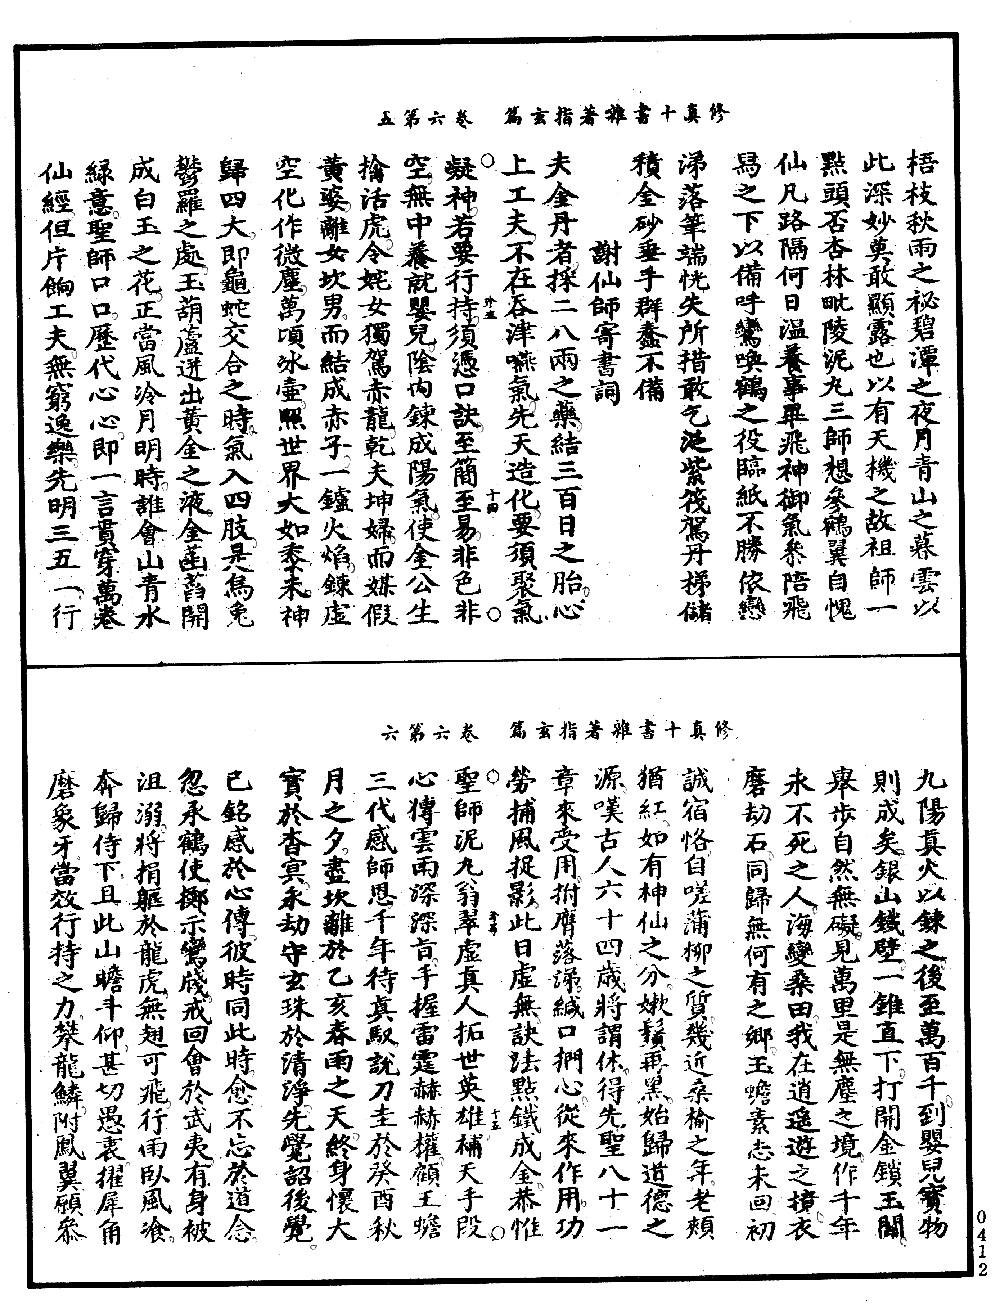 修真十書雜著指玄篇　卷六第五
梧枝秋雨之祕碧潭之夜月青山之暮雲以
此深妙莫敢顯露也以有天機之故祖師一
點頭否杏林毗陵泥九三師想參鶴翼自愧
仙凡路隔何日溫養事畢飛神御氣參陪飛
舄之下以備呼鸞喚鶴之役臨紙不勝依戀
涕落筆端恍失所措敢乞泛紫筏駕丹梯儲
積金砂垂手群蠢不備
謝仙師寄書詞
夫金丹者採二八兩之藥結三百日之胎心
上工夫不在吞津嚥氣先天造化要須聚氣
凝神若要行持須憑口訣至簡至易非色非
空無中養就嬰兒陰內鍊成陽氣使金公生
擒活虎令姹女獨駕赤龍乾夫坤婦而媒假
黃婆離女坎男而結成赤子一鑪火焰鍊虛
空化作微塵萬頃冰壺照世界大如黍米神
歸四大即龜蛇交合之時氣入四肢是烏兔
鬱羅之處玉葫蘆迸出黃金之液金菡萏開
成白玉之花正當風冷月明時誰會山青水
綠意聖師口口歷代心心即一言貫穿萬卷
仙經但片餉工夫無窮逸樂先明三五一行
修真十書雜著指玄篇　卷六第六
九陽真火以鍊之後至萬百千到嬰兒寶物
則成矣銀山鐵壁一錐直下打開金鎖玉關
舉步自然無礙見萬里是無塵之境作千年
永不死之人海變桑田我在逍遙遊之境衣
磨劫石同歸無何有之鄉玉蟾素志未回初
誠宿恪自嗟蒲柳之質幾近桑榆之年老頰
猶紅如有神仙之分嫩鬚再黑始歸道德之
源嘆古人六十四歲將謂休得先聖八十一
章來受用拊膺落涕緘口捫心從來作用功
勞捕風捉影此日虛無訣法點鐵成金恭惟
聖師泥九翁翠虛真人拓世英雄補天手段
心傳雲雨深深旨手握雷霆赫赫權顧玉蟾
三代感師恩千年待真馭說刀圭於癸酉秋
月之夕盡坎離於乙亥春雨之天終身懷大
寶於杳冥永劫守玄珠於清淨先覺詔後覺
已銘感於心傳彼時同此時愈不忘於道念
忽承鶴使擲示鸞牋戒回會於武夷有身被
沮溺將捐軀於龍虎無翅可飛行雨臥風飡
奔歸侍下且此山瞻斗仰甚切愚衷擢犀角
磨象牙當效行持之力攀龍鱗附鳳翼願參
0412